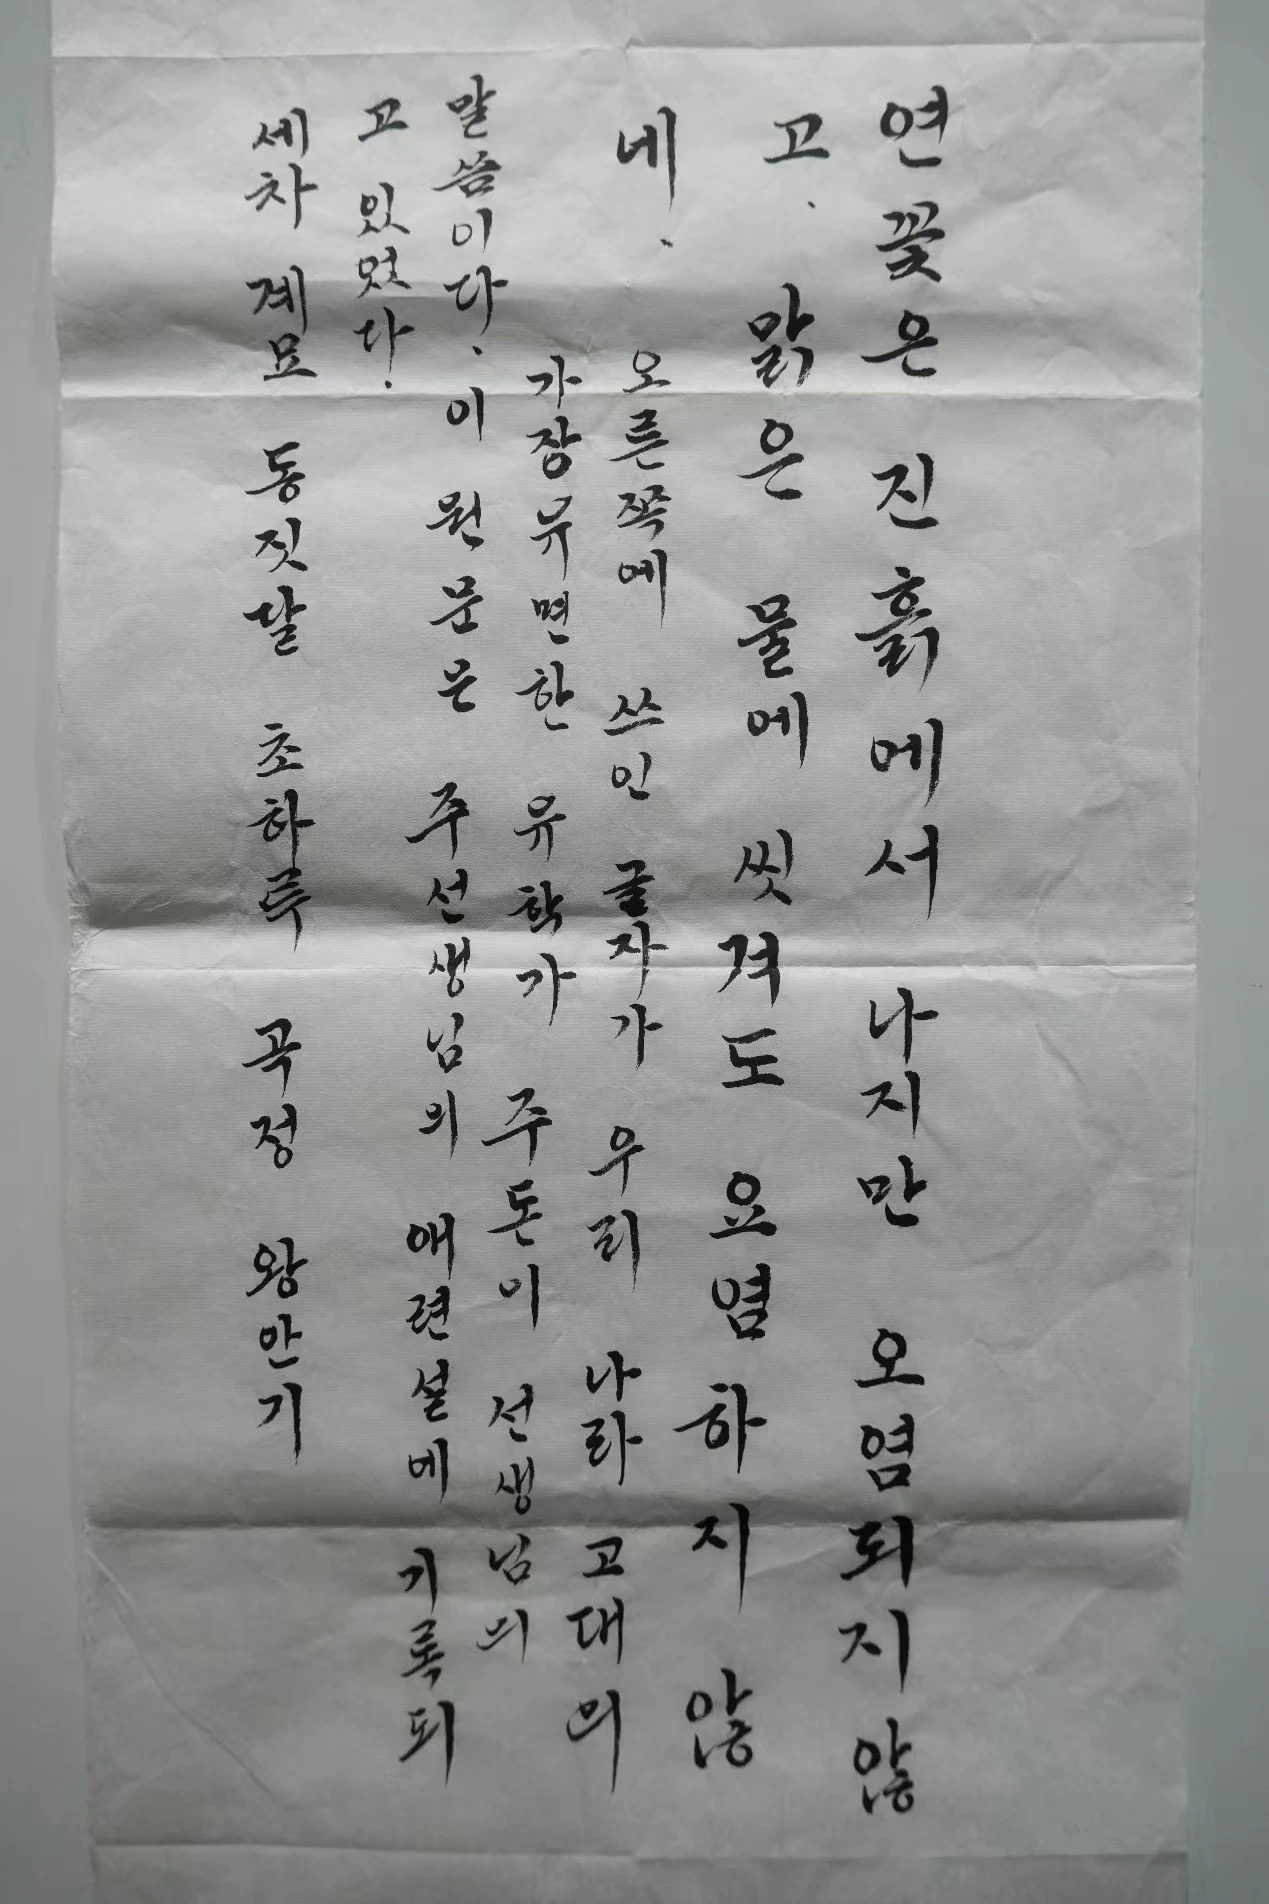 연꽃은 진흙에서 나지만 오염되지 않
고. 맑은 물에 씻겨도 요염하지 않
네. 오른쪽에 쓰인 글자가 우리 나라 고대의
가장유몀한 유학가 주돈이 선생님의
말씀이다. 이 원문은 주선생님의 애련설에 기록되
고 있었다.
세차 계묘 동짓달 초하루 곡정 왕안기